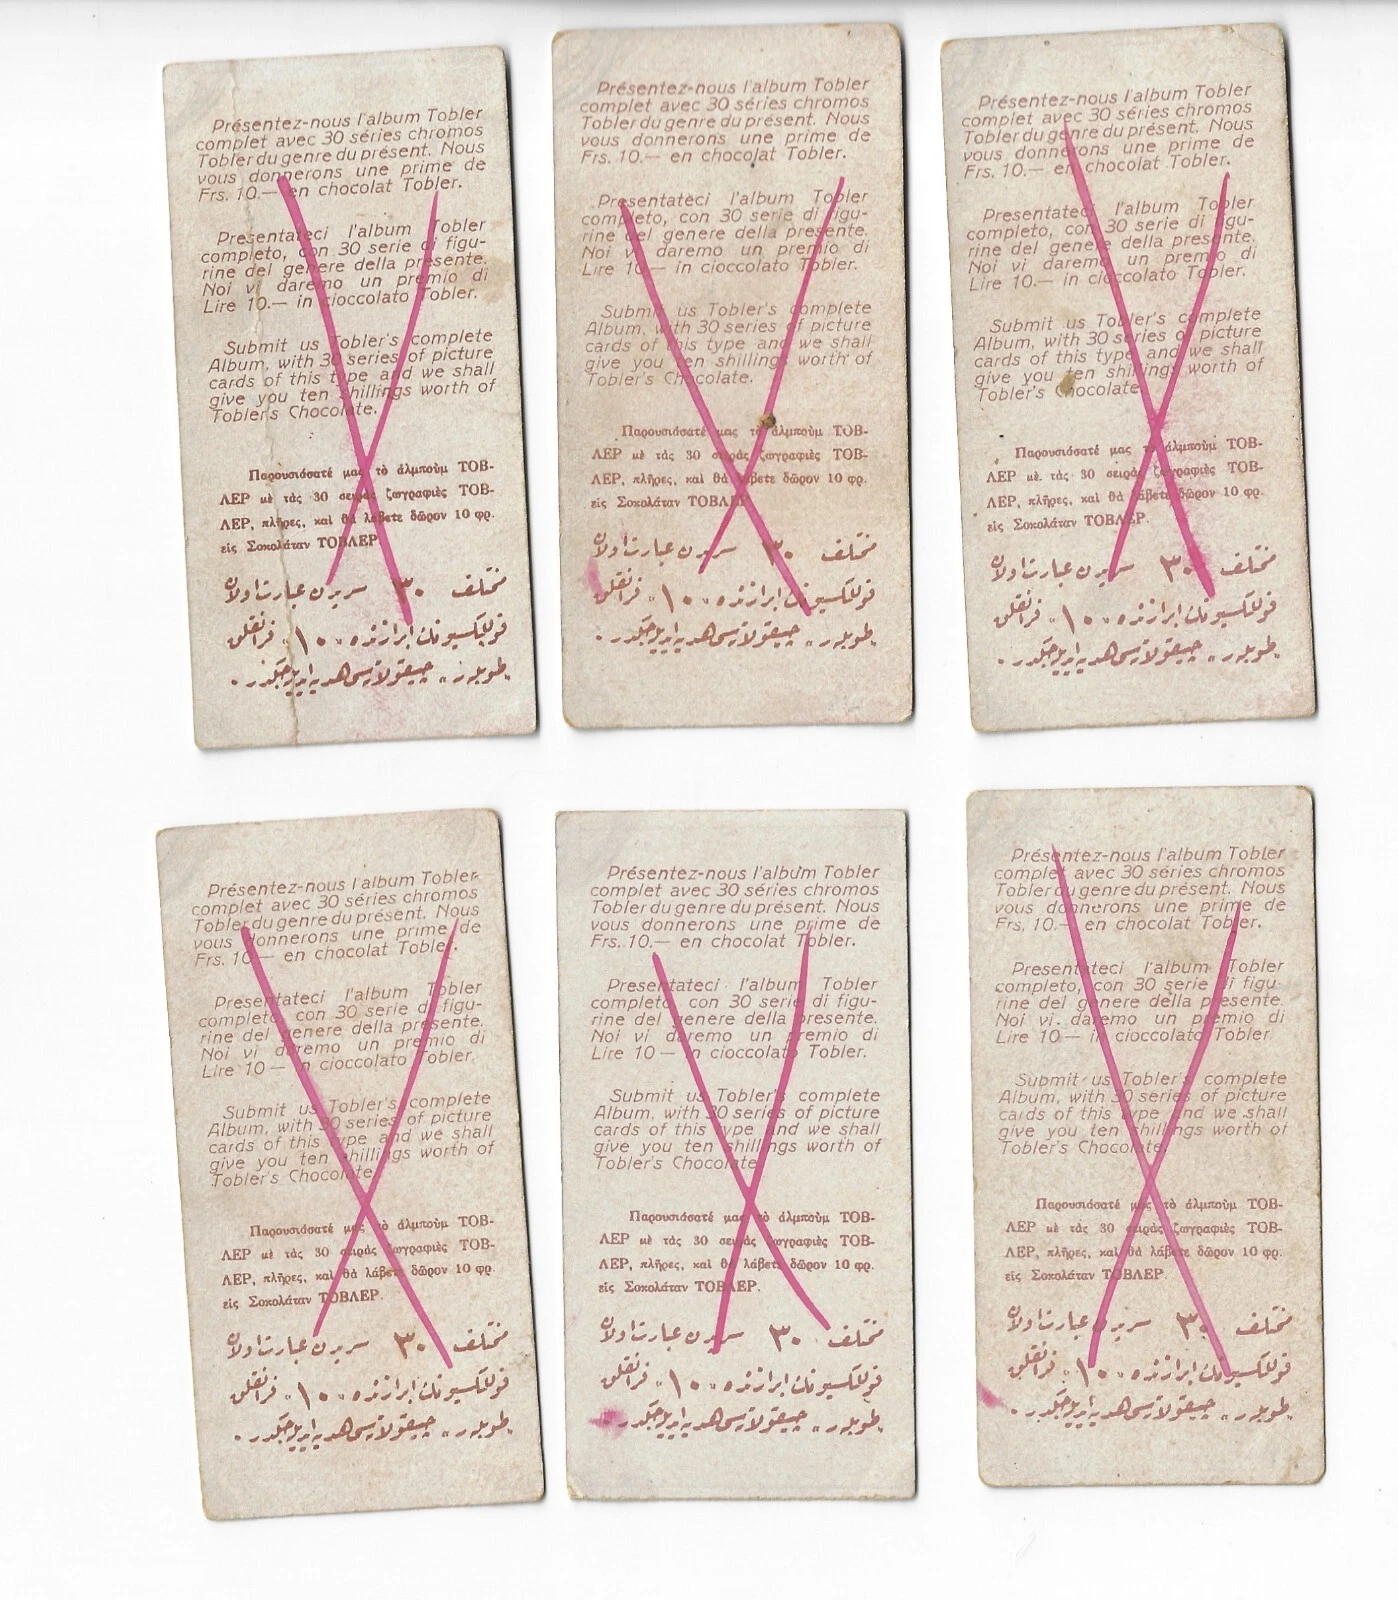 Présentez-nous l'album Tobler
complet avec 30 séries chromos
Tobler du genre du présent. Nous
vous donnerons une prime de
Frs. 10.— en chocolat Tobler.
Presentateci l'album Tobler
completo, con 30 serie di figu-
rine del genere della presente.
Noi vi daremo un premio di
Lire 10.— in cioccolato Tobler.
Submit us Tobler's complete
Album, with 30 series of picture
cards of this type and we shall
give you ten shillings worth of
Tobler's Chocolate.
Παρουσιάσατέ μας τὸ ἀλμποὺμ ΤΟΒ-
ΛΕΡ μὲ τὰς 30 σειρὰς ζωγραφιὲς ΤΟΒ-
ΛΕΡ, πλῆρες, καὶ θὰ λάβετε δῶρον 10 φρ.
εἰς Σοκολάταν ΤΟΒΛΕΡ.
مختلف ٣٠ سریدن عبارت اولان
قوللکسیونك ابرازنده „١٠“ فرانقلق
„طوبلر“ چیقولاته سی هدیه ایدیله جکدر .
Présentez-nous l'album Tobler
complet avec 30 séries chromos
Tobler du genre du présent. Nous
vous donnerons une prime de
Frs. 10.— en chocolat Tobler.
Presentateci l'album Tobler
completo, con 30 serie di figu-
rine del genere della presente.
Noi vi daremo un premio di
Lire 10.— in cioccolato Tobler.
Submit us Tobler's complete
Album, with 30 series of picture
cards of this type and we shall
give you ten shillings worth of
Tobler's Chocolate.
Παρουσιάσατέ μας τὸ ἀλμποὺμ ΤΟΒ-
ΛΕΡ μὲ τὰς 30 σειρὰς ζωγραφιὲς ΤΟΒ-
ΛΕΡ, πλῆρες, καὶ θὰ λάβετε δῶρον 10 φρ.
εἰς Σοκολάταν ΤΟΒΛΕΡ
مختلف ٣٠ سریدن عبارت اولان
قوللکسیونك ابرازنده „١٠“ فرانقلق
„طوبلر“ چیقولاته سی هدیه ایدیله جکدر .
Présentez-nous l'album Tobler
complet avec 30 séries chromos
Tobler du genre du présent. Nous
vous donnerons une prime de
Frs. 10.— en chocolat Tobler.
Presentateci l'album Tobler
completo, con 30 serie di figu-
rine del genere della presente.
Noi vi daremo un premio di
Lire 10.— in cioccolato Tobler.
Submit us Tobler's complete
Album, with 30 series of picture
cards of this type and we shall
give you ten shillings worth of
Tobler's Chocolate.
Παρουσιάσατέ μας τὸ ἀλμποὺμ ΤΟΒ-
ΛΕΡ μὲ τὰς 30 σειρὰς ζωγραφιὲς ΤΟΒ-
ΛΕΡ, πλῆρες, καὶ θὰ λάβετε δῶρον 10 φρ.
εἰς Σοκολάταν ΤΟΒΛΕΡ.
مختلف ٣٠ سریدن عبارت اولان
قوللکسیونك ابرازنده „١٠“ فرانقلق
„طوبلر“ چیقولاته سی هدیه ایدیله جکدر .
Présentez-nous l'album Tobler
complet avec 30 séries chromos
Tobler du genre du présent. Nous
vous donnerons une prime de
Frs. 10.— en chocolat Tobler.
Presentateci l'album Tobler
completo, con 30 serie di figu-
rine del genere della presente.
Noi vi daremo un premio di
Lire 10 — in cioccolato Tobler.
Submit us Tobler's complete
Album, with 30 series of picture
cards of this type and we shall
give you ten shillings worth of
Tobler's Chocolate.
Παρουσιάσατέ μας τὸ ἀλμποὺμ ΤΟΒ-
ΛΕΡ μὲ τὰς 30 σειρὰς ζωγραφιὲς ΤΟΒ-
ΛΕΡ, πλῆρες, καὶ θὰ λάβετε δῶρον 10 φρ.
εἰς Σοκολάταν ΤΟΒΛΕΡ.
مختلف ٣٠ سریدن عبارت اولان
قوللکسیونك ابرازنده „١٠“ فرانقلق
„طوبلر“ چیقولاته سی هدیه ایدیله جکدر .
Présentez-nous l'album Tobler
complet avec 30 séries chromos
Tobler du genre du présent. Nous
vous donnerons une prime de
Frs. 10.— en chocolat Tobler.
Presentateci l'album Tobler
completo, con 30 serie di figu-
rine del genere della presente.
Noi vi daremo un premio di
Lire 10 — in cioccolato Tobler.
Submit us Tobler's complete
Album, with 30 series of picture
cards of this type and we shall
give you ten shillings worth of
Tobler's Chocolate
Παρουσιάσατέ μας τὸ ἀλμποὺμ ΤΟΒ-
ΛΕΡ μὲ τὰς 30 σειρὰς ζωγραφιὲς ΤΟΒ-
ΛΕΡ, πλῆρες, καὶ θὰ λάβετε δῶρον 10 φρ.
εἰς Σοκολάταν ΤΟΒΛΕΡ.
مختلف ٣٠ سریدن عبارت اولان
قوللکسیونك ابرازنده „١٠“ فرانقلق
„طوبلر“ چیقولاته سی هدیه ایدیله جکدر .
Présentez-nous l'album Tobler
complet avec 30 séries chromos
Tobler du genre du présent. Nous
vous donnerons une prime de
Frs. 10.— en chocolat Tobler.
Presentateci l'album Tobler
completo, con 30 serie di figu-
rine del genere della presente.
Noi vi daremo un premio di
Lire 10 — in cioccolato Tobler
Submit us Tobler's complete
Album, with 30 series of picture
cards of this type and we shall
give you ten shillings worth of
Tobler's Chocolate.
Παρουσιάσατέ μας τὸ ἀλμποὺμ ΤΟΒ-
ΛΕΡ μὲ τὰς 30 σειρὰς ζωγραφιὲς ΤΟΒ-
ΛΕΡ, πλῆρες, καὶ θὰ λάβετε δῶρον 10 φρ.
εἰς Σοκολάταν ΤΟΒΛΕΡ.
مختلف ٣٠ سریدن عبارت اولان
قوللکسیونك ابرازنده „١٠“ فرانقلق
„طوبلر“ چیقولاته سی هدیه ایدیله جکدر .